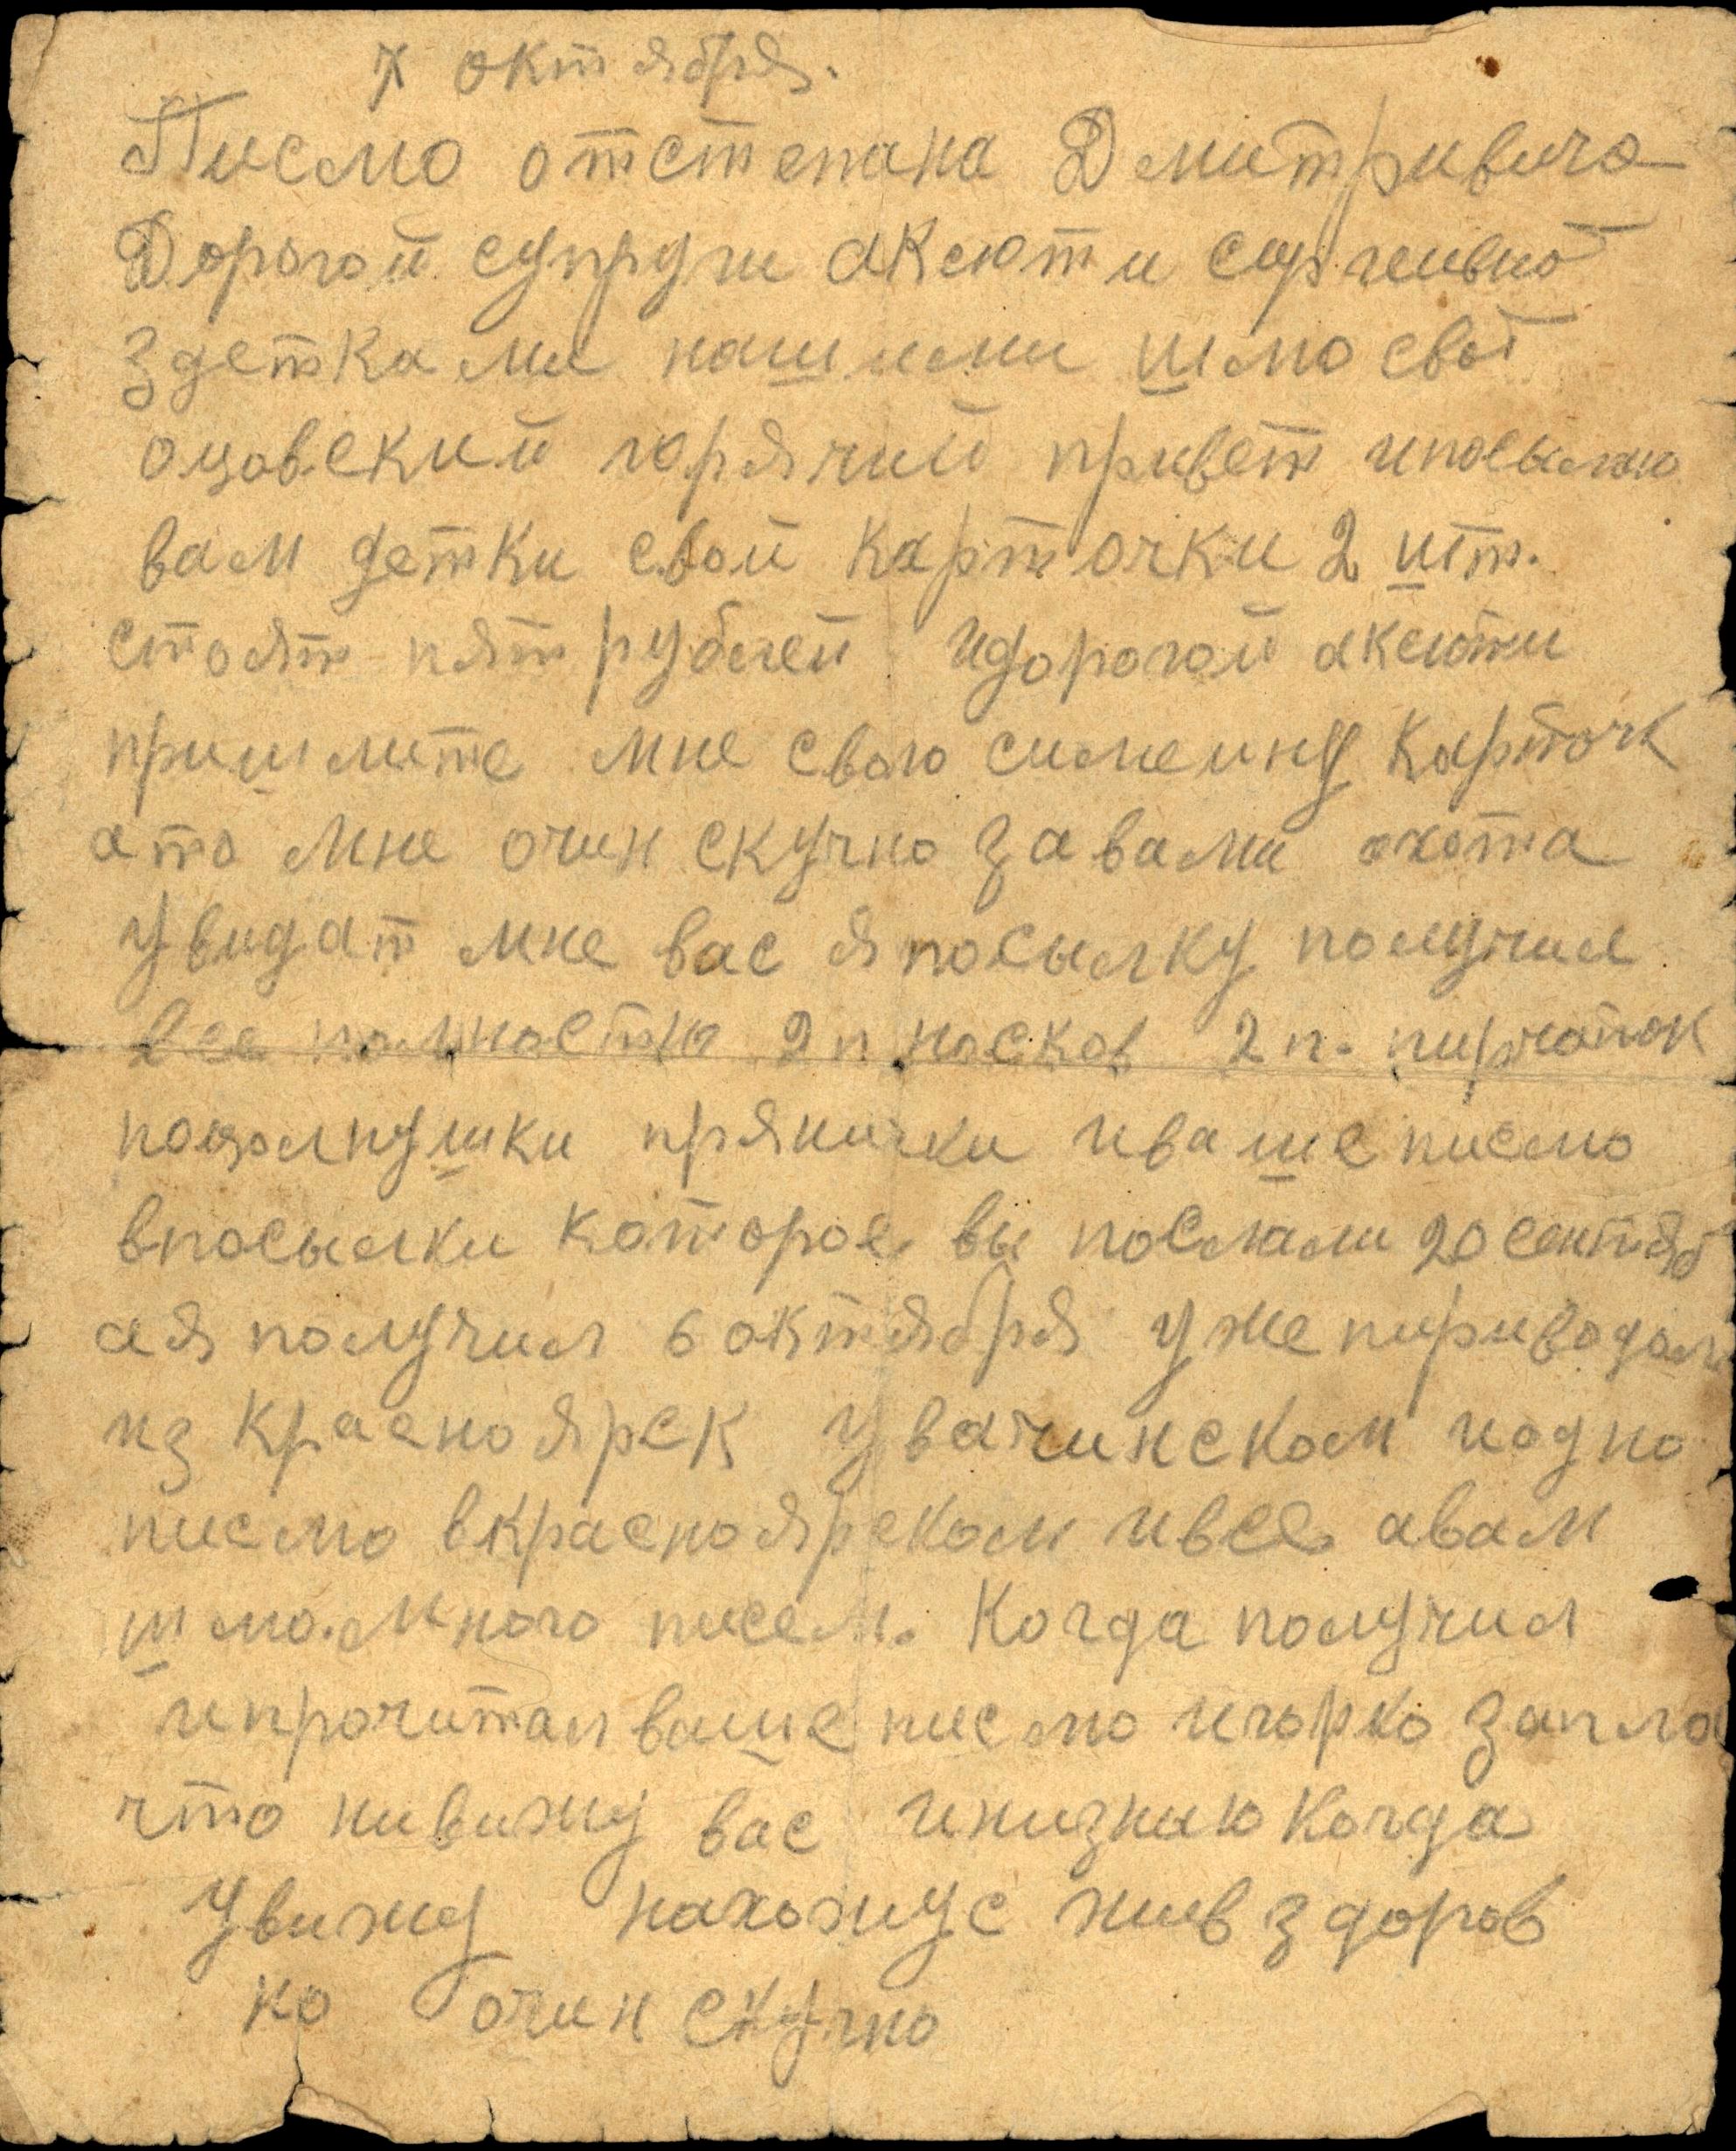 7 октября.
Писмо отстепана Дмитривича
Дорогой супруги аксюти сиргеивной
здетками нашими шлю свой
оцовский горячий привет ипосылаю
вам детки свои карточки 2 шт.
стоят пят рублей идорогой аксюти
пришлите мне свою симеину карточк
ато мне очин скучно завами охота
увидат мне вас япосылку получил
все полностю 2 п носков 2 п. пирчаток
подсолнушки прянички иваше писмо
впосылки которое вы послали 20 сентяб
ая получил 6 октября уже пириводом
из Красноярск у вачинском иодно
писмо вкрасноярском ивсе авам
шлю. много писем. Когда получил
ипрочитал ваше писмо игорко запла
что нивижу вас инизнаю Когда
увижу нахожус жив здоров
но очин скучно